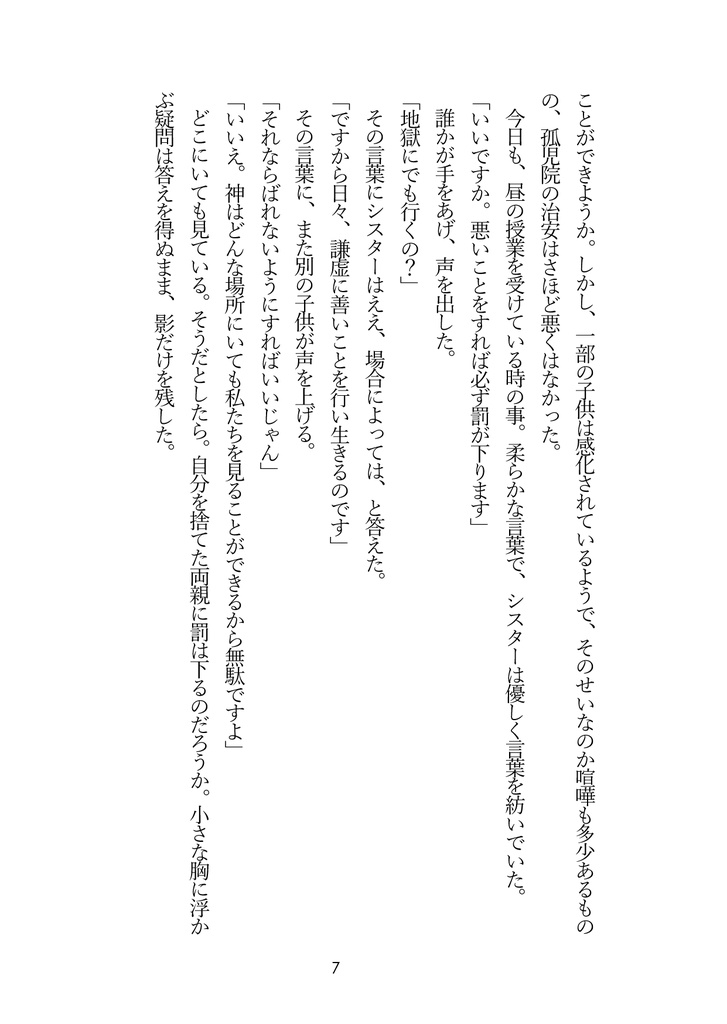 ことができようか。しかし、一部の子供は感化されているようで、そのせいなのか喧嘩も多少あるもの
の、孤児院の治安はさほど悪くはなかった。
今日も、昼の授業を受けている時の事。柔らかな言葉で、シスターは優しく言葉を紡いでいた。
「いいですか。悪いことをすれば必ず罰が下ります」
誰かが手をあげ、声を出した。
「地獄にでも行くの？」
その言葉にシスターはええ、場合によっては、と答えた。
「ですから日々、謙虚に善いことを行い生きるのです」
その言葉に、また別の子供が声を上げる。
「それならばれないようにすればいいじゃん」
「いいえ。神はどんな場所にいても私たちを見ることができるから無駄ですよ」
どこにいても見ている。そうだとしたら。自分を捨てた両親に罰は下るのだろうか。小さな胸に浮か
ぶ疑問は答えを得ぬまま、影だけを残した。
7